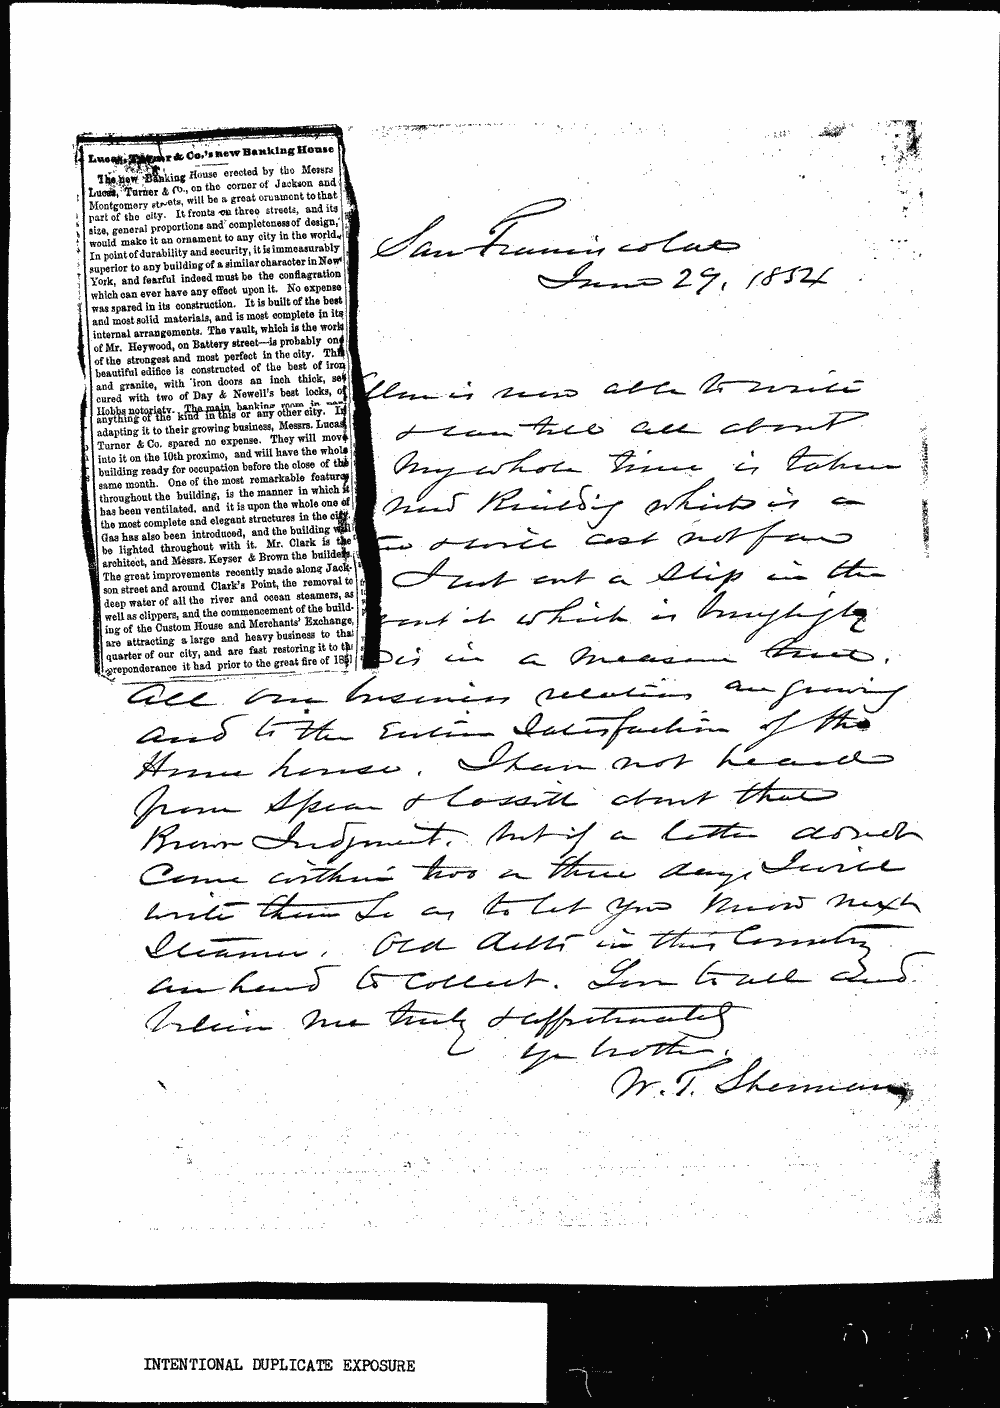 Lucas, Turner & Co.'s new Banking House
The new Banking House erected by the Messrs
Lucas, Turner & Co., on the corner of Jackson and
Montgomery streets, will be a great ornament to that
part of the city. It fronts on three streets, and its
size, general proportions and completeness of design,
would make it an ornament to any city in the world.
In point of durability and security, it is immeasurably
superior to any building of a similar character in New
York, and fearful indeed must be the conflagration
which can ever have any effect upon it. No expense
was spared in its construction. It is built of the best
and most solid materials, and is most complete in its
internal arrangements. The vault, which is the work
of Mr. Heywood, on Battery street—is probably one
of the strongest and most perfect in the city. This
beautiful edifice is constructed of the best of iron
and granite, with iron doors an inch thick, se-
cured with two of Day & Newell's best locks, of
Hobbs notoriety. The main banking room in
anything of the kind in this or any other city. In
adapting it to their growing business, Messrs. Lucas
Turner & Co. spared no expense. They will move
into it on the 10th proximo, and will have the whole
building ready for occupation before the close of the
same month. One of the most remarkable features
throughout the building, is the manner in which it
has been ventilated, and it is upon the whole one of
the most complete and elegant structures in the city.
Gas has also been introduced, and the building will
be lighted throughout with it. Mr. Clark is the
architect, and Messrs. Keyser & Brown the builders.
The great improvements recently made along Jack-
son street and around Clark's Point, the removal to
deep water of all the river and ocean steamers, as
well as clippers, and the commencement of the build-
ing of the Custom House and Merchants' Exchange,
are attracting a large and heavy business to that
quarter of our city, and are fast restoring it to the
preponderance it had prior to the great fire of 1851
San Francisco Cal
June 29, 1854
Ellen is now able to write
& can tell all about
My whole time is taken
new Building which is a
& will cost not far
I cut out a slip in the
it which is
is in a measure true.
All our business relations are growing
and to the Entire Satisfaction of the
Home house. I have not heard
from Spear & Cossitt about that
Brown Judgment, but if a letter does not
Come within two or three days I will
write them so as to let you know next
Steamer. Old debts in this Country
are hard to collect. Love to all and
believe me truly & affectionately
yr brother,
W. T. Sherman
INTENTIONAL DUPLICATE EXPOSURE